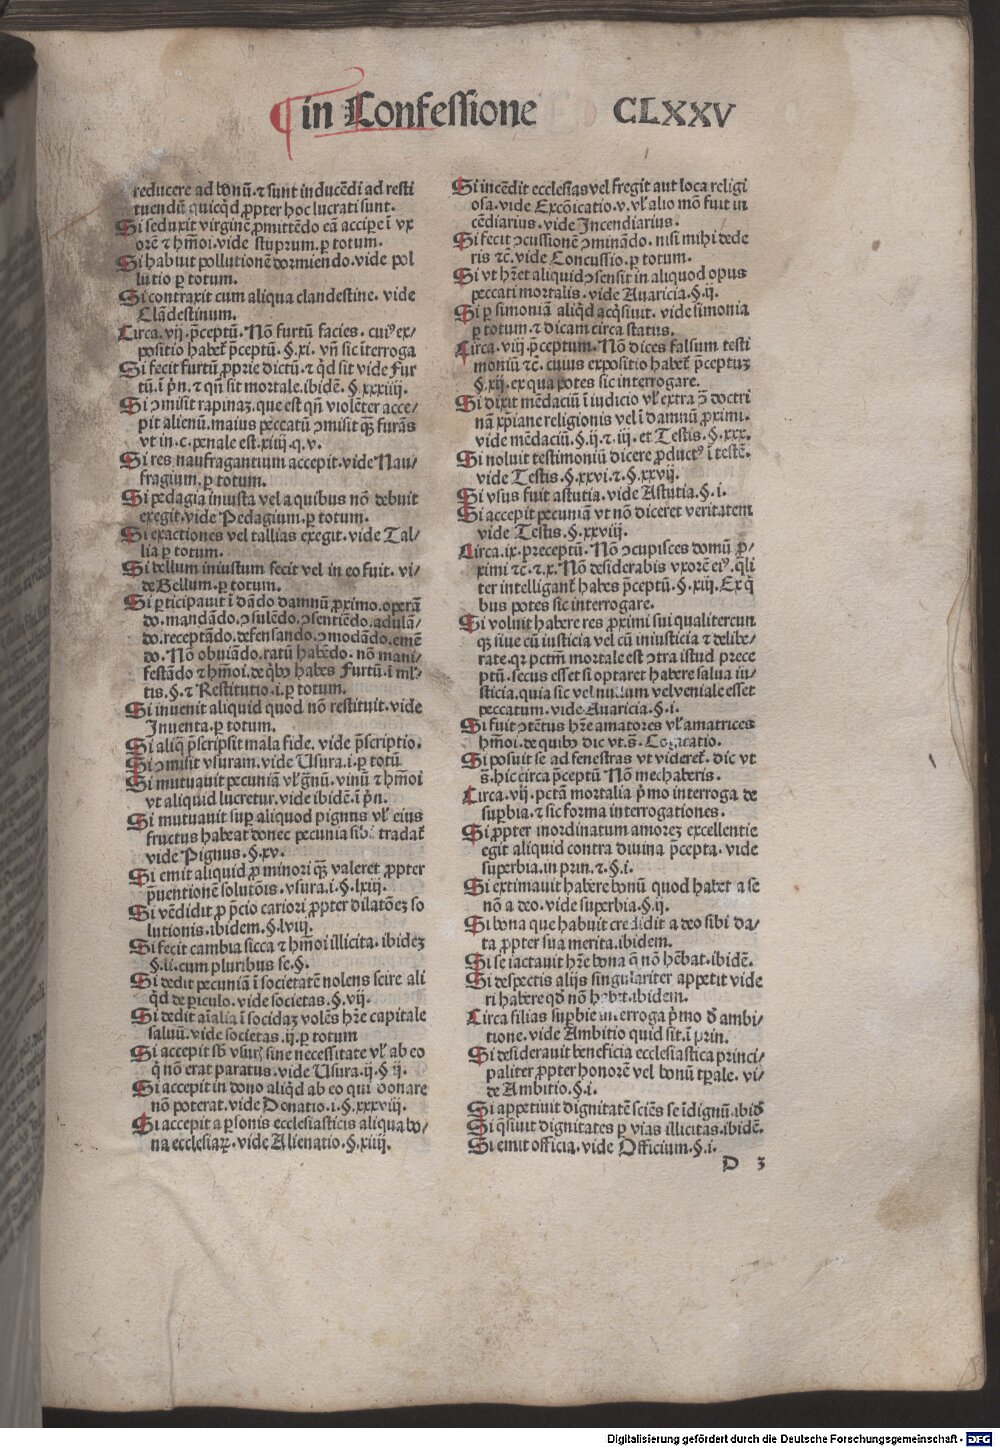 in Confessione CLXXV
reducere ad bonū. ⁊ sunt inducēdi ad resti
tuendū quicq̇d ꝓpter hoc lucrati sunt.
Si seduxit virginē ꝓmittēdo eā accipe ī vx
orē ⁊ hm̄oi. vide stuprum. ꝑ totum.
Si habuit pollutionē dormiendo. vide pol
lutio ꝑ totum.
Si contraxit cum aliqua clandestine. vide
Clādestinum.
Circa. vij. p̄ceptū. Nō furtū facies. cuiꝰ ex⸗
positio habet᷑ p̄ceptū. §. xi. vn̄ sic īterroga
Si fecit furtū ꝓprie dictū. ⁊ qd̓ sit vide Fur
tū. ī pn̓. ⁊ qn̄ sit mortale. ibidē. § xxxiiij.
Si ꝯmisit rapinaꝫ. que est qn̄ violēter acce⸗
pit alienū. maius peccatū ꝯmisit qꝫ̄ furās
vt in. c. penale est. xiiij. q. v.
Si res naufragantium accepit. vide Nau⸗
fragium. ꝑ totum.
Si pedagia iniusta vel a quibus nō debuit
exegit. vide Pedagium. ꝑ totum.
Si exactiones vel tallias exegit. vide Tal⸗
lia ꝑ totum.
Si bellum iniustum fecit vel in eo fuit. vi⸗
de Bellum. ꝑ totum.
Si ꝑticipauit ī dādo damnū ꝓximo. operā
do. mandādo. ꝯsulēdo. ꝯsentiēdo. adulā⸗
do. receptādo. defensando. ꝯmodādo. emē
do. Nō obuiādo. ratū habēdo. nō mani⸗
festādo ⁊ hm̄oi. de qͥbꝰ habes Furtū. ī ml̓⸗
tis. §. ⁊ Restitutio. i. ꝑ totum.
Si inuenit aliquid quod nō restituit. vide
Inuenta. ꝑ totum.
Si aliqͥ p̄scripsit mala fide. vide p̄scriptio.
Si ꝯmisit vsuram. vide Usura. i. ꝑ totū
Si mutuauit pecuniā vl̓ gn̄ū. vinū ⁊ hm̄oi
vt aliquid lucretur. vide ibidē. ī pn̓.
Si mutuauit sup̱ aliquod pignus vl̓ eius
fructus habeat donec pecunia sibi tradat᷑
vide Pignus. §. xv.
Si emit aliquid ꝓ minori qꝫ̄ valeret ꝓpter
p̄uentionē solutōis. vsura. i. §. lxiij.
Si vēdidit ꝓ p̄cio cariori ꝓpter dilatōeꝫ so
lutionis. ibidem. §. lviij.
Si fecit cambia sicca ⁊ hm̄oi illicita. ibideꝫ
§. li. cum pluribus se. §.
Si dedit pecuniā ī societatē nolens scire ali
qd̓ de ꝑiculo. vide societas. §. vij.
Si dedit aīalia ī socidaꝫ volēs hr̄e capitale
saluū. vide societas. ij. ꝑ totum
Si accepit sb̓ vsurꝭ sine necessitate vl̓ ab eo
qͥ nō erat paratus. vide Usura. ij. § ij.
Si accepit in dono aliqd̓ ab eo qui donare
nō poterat. vide Donatio. i. §. xxxviij.
Si accepit a ꝑsonis ecclesiasticis aliqua bo⸗
na ecclesiaꝝ. vide Alienatio. §. xiiij.
Si incēdit ecclesias vel fregit aut loca religi
osa. vide Excōicatio. v. vl̓ alio mō fuit in
cēdiarius. vide Incendiarius.
Si fecit ꝯcussionē ꝯminādo. nisi mihi dede
ris ⁊c̄. vide Concussio. ꝑ totum.
Si vt hr̄et aliquid ꝯsensit in aliquod opus
peccati mortalis. vide Auaricia. §. ij.
Si ꝑ simoniā aliqd̓ acq̄siuit. vide simonia
ꝑ totum. ⁊ dicam circa status.
Circa. viij. p̄ceptum. Nō dices falsum testi
moniū ⁊c̄. cuius expositio habet᷑ p̄ceptuꝫ
§. xij. ex qua potes sic interrogare.
Si dixit mēdaciū ī iudicio vl̓ extra ꝯ̄ doctri
nā xp̄iane religionis vel ī damnū ꝓximi.
vide mēdaciū. §. ij. ⁊. iij. et Testis. §. xxx.
Si noluit testimoniū dicere ꝓductꝰ ī testē.
vide Testis. §. xxvi. ⁊. §. xxvij.
Si vsus fuit astutia. vide Astutia. §. i.
Si accepit pecuniā vt nō diceret veritatem
vide Testis. §. xxviij.
Circa. ix. preceptū. Nō ꝯcupisces domū ꝓ⸗
ximi ⁊c̄. ⁊. x. Nō desiderabis vxorē eiꝰ. qͣli
ter intelligant᷑ habes p̄ceptū. §. xiij. Ex qͥ
bus potes sic interrogare.
Si voluit habere res ꝓximi sui qualitercun
qꝫ siue cū iusticia vel cū iniusticia ⁊ delibe⸗
rate. qꝛ pctm̄ mortale est ꝯtra istud prece
ptū. secus esset si optaret habere salua iu⸗
sticia. quia sic vel nullum vel veniale esset
peccatum. vide Auaricia. §. i.
Si fuit ꝯtētus hr̄e amatores vl̓ amatrices
hm̄oi. de quibꝰ dic vt. s̄. Cogitatio.
Si posuit se ad fenestras vt videret᷑. dic vt
s̄. hic circa p̄ceptū Nō mechaberis.
Circa. vij. pctā mortalia pͥmo interroga de
sup̱bia. ⁊ sic forma interrogationes.
Si ꝓpter inordinatum amoreꝫ excellentie
egit aliquid contra diuina p̄cepta. vide
superbia. in prin. ⁊. §. i.
Si extimauit habere bonū quod habet a se
nō a deo. vide superbia. §. ij.
Si bona que habuit credidit a deo sibi da⸗
ta ꝓpter sua merita. ibidem.
Si se iactauit hr̄e bona q̄ nō hēbat. ibidē.
Si despectis alijs singulariter appetit vide
ri habere qd̓ nō habet. ibidem.
Circa filias sup̱bie interroga pͥmo d̓ ambi⸗
tione. vide Ambitio quid sit. ī prin.
Si desiderauit beneficia ecclesiastica princi⸗
paliter ꝓpter honorē vel bonū tꝑale. vi⸗
de Ambitio. §. i.
Si appetiuit dignitatē sciēs se īdignū. ibid̓
Si q̄siuit dignitates ꝑ vias illicitas. ibidē.
Si emit officia. vide Officium. §. i.
D 3
Digitalisierung gefördert durch die Deutsche Forschungsgemeinschaft - DFG